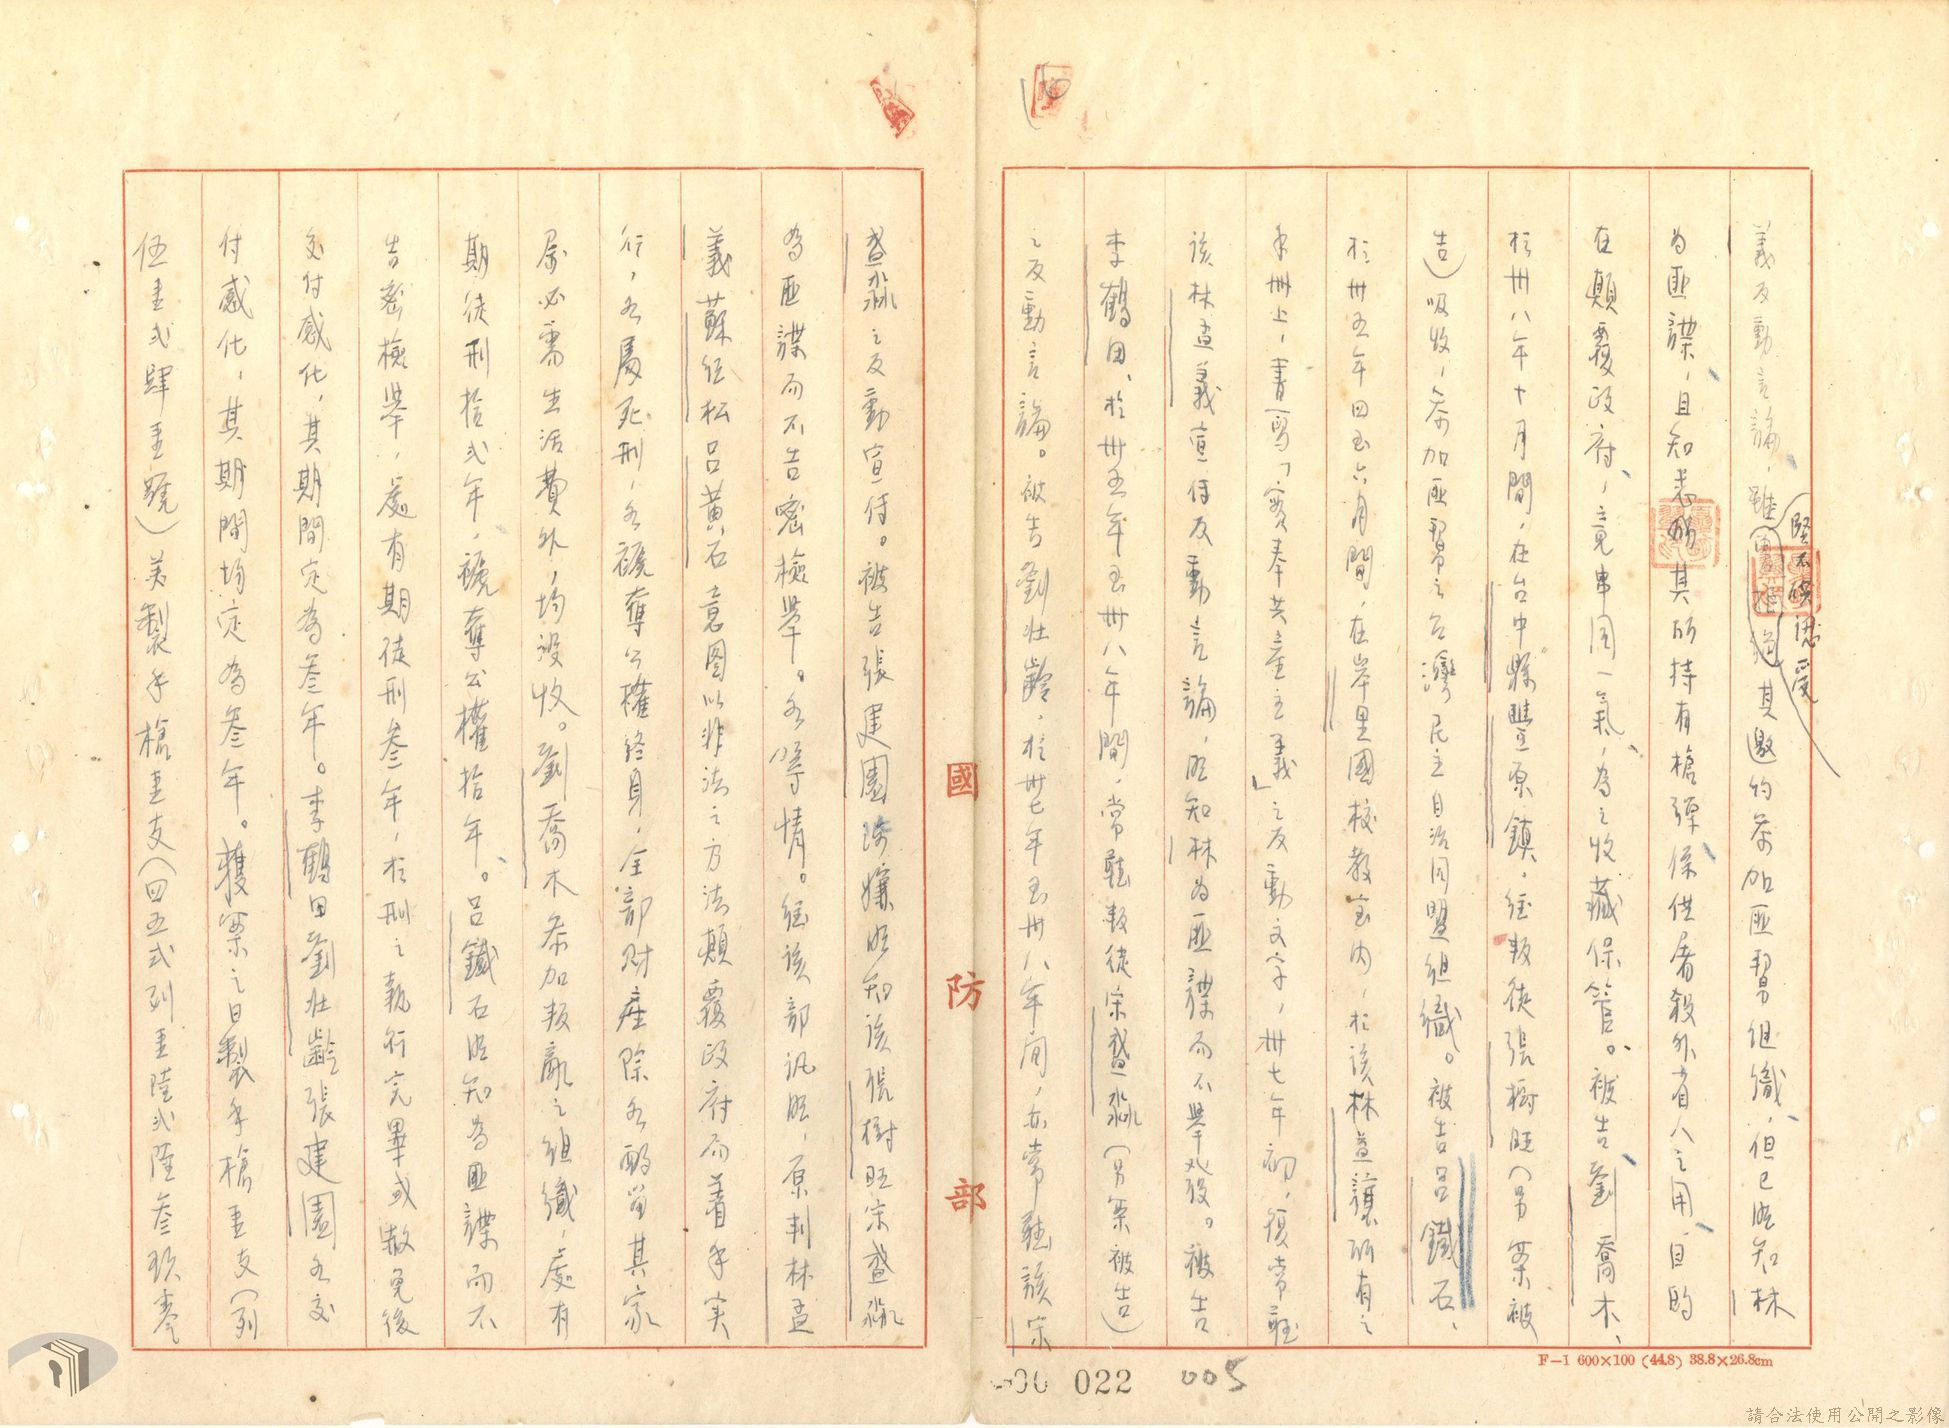 義反動言論，雖堅不硬認受其邀約參加匪幫組織，但已明知林
為匪諜，且知其所持有槍彈係供屠殺外省人之用，目的
在顛覆政府，竟串同一氣，為之收藏保管。被告劉喬木、
於卅八年十月間，在台中縣豐原鎮，經叛徒張樹旺（另案被
告）吸收，參加匪幫之台灣民主自治同盟組織。被告呂鐵石、
於卅五年四至六月間，在岸里國校教室內，於該林孟讓所有之
手冊上，書寫「實奉共產主義」之反動文字，卅七年初，復常聽
該林孟義宣傳反動言論，明知林為匪諜而不舉發。被告
李鶴田、於卅五年至卅八年間，常聽叛徒宋盛淼（另案被告）
之反動言論。被告劉壯齡，於卅七年至卅八年間，亦常聽該宋
盛淼之反動宣傳。被告張建園明知該張樹旺宋盛淼
為匪諜而不告密檢舉。各等情。經該部訊明，原判林孟
義蘇經松呂黃石意圖以非法之方法顛覆政府而著手实
行，各處死刑，各褫奪公權終身，全部財產除各酌留其家
屬必需生活費外，均沒收。劉喬木參加叛亂之組織，處有
期徒刑拾弍年，褫奪公權拾年。呂鐵石明知為匪諜而不
告密檢舉，處有期徒刑叁年，於刑之執行完畢或赦免後
交付感化，其期間定為叁年。李鶴田劉壯齡張建園各交
付感化，其期間均定為叁年。獲案之日製手槍壹支（列
伍壹弍肆壹號）美製手槍壹支（四五式列壹陸弍陸叁玖叁
國防部
F-1 600×100 (44.8) 38.8×26.8cm
00 022 005
請合法使用公開之影像